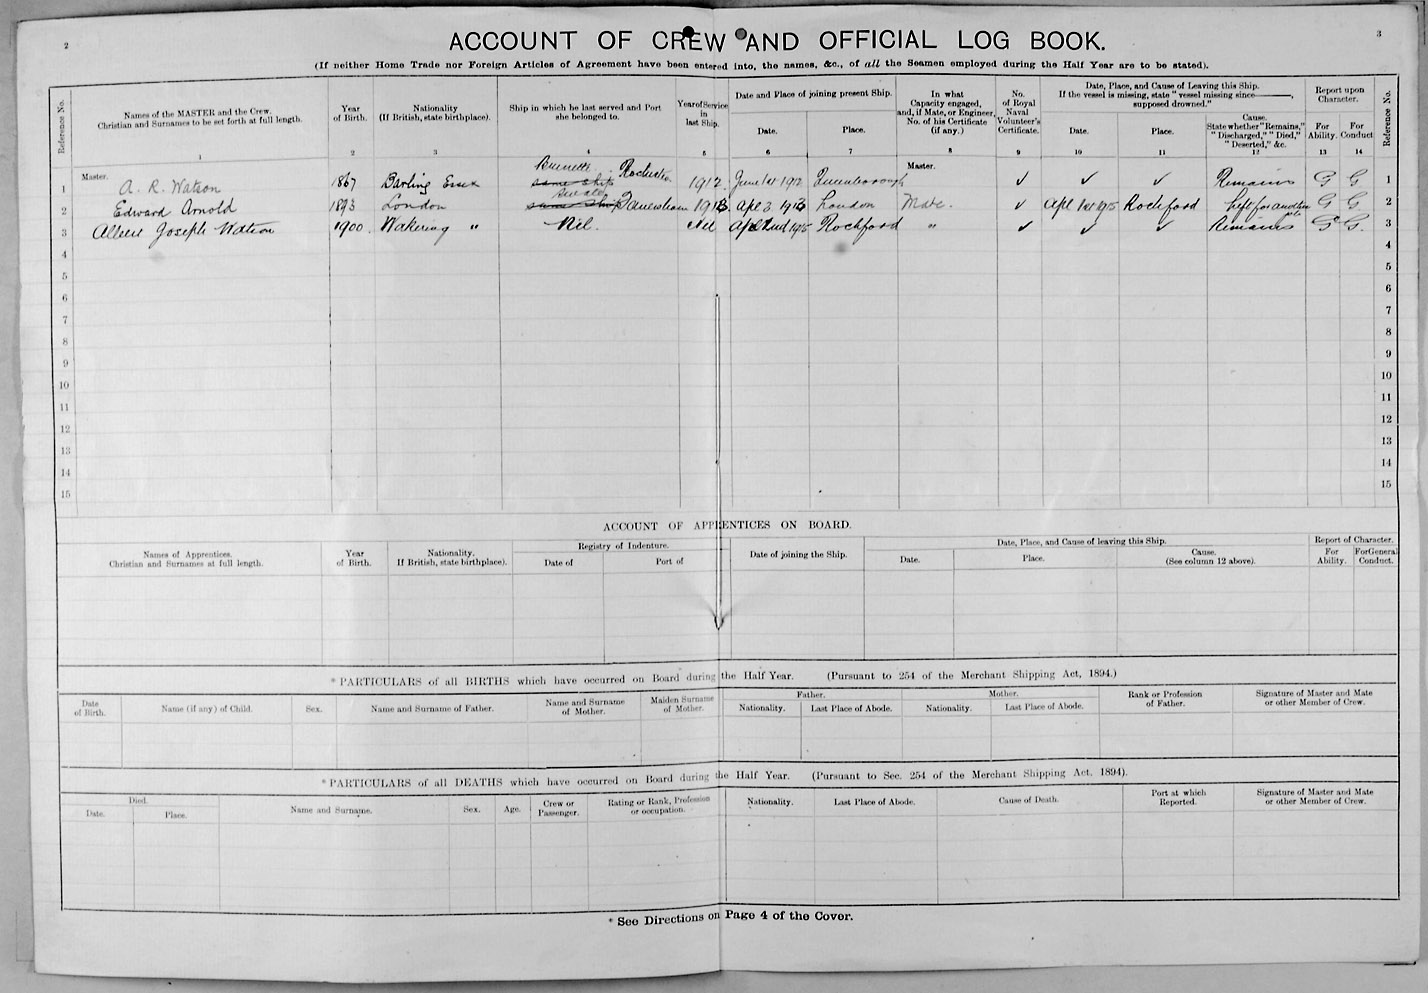 2
3
ACCOUNT OF CREW AND OFFICIAL LOG BOOK.
(If neither Home Trade nor Foreign Articles of Agreement have been entered into, the names, &c., of all the Seamen employed during the Half Year are to be stated).
Reference No.
Names of the MASTER and the Crew.
Christian and Surnames to be set forth at full length.
Year
of Birth.
Nationality
(If British, state birthplace).
Ship in which he last served and Port
she belonged to.
Year of Service
in
last Ship.
Date and Place of joining present Ship.
Date.
Place.
In what
Capacity engaged,
and, if Mate, or Engineer,
No. of his Certificate
(if any.)
No.
of Royal
Naval
Volunteer's
Certificate.
Date, Place, and Cause of Leaving this Ship.
If the vessel is missing, state "vessel missing since ———,
supposed drowned."
Date.
Place.
Cause.
State whether "Remains,"
"Discharged," "Died,"
"Deserted," &c.
Report upon
Character.
For
Ability.
For
Conduct
Reference No.
1 2 3 4 5 6 7 8 9 10 11 12 13 14
1 Master. A. R. Watson 1867 Barling Essex same ship 1912. June 1st 1912 Queenborough Master. ✓ ✓ ✓ Remains G G 1
2 Edward Arnold 1893 London same ship Faversham 1913 Apl 3 1913 London Mate. ✓ Apl 1st 1915 Rochford left for another G G 2
3 Albert Joseph Watson 1900. Wakering " Nil. Nil Apl 2nd 1915 Rochford " ✓ ✓ ✓ Remains G G. 3
4 4
5 5
6 6
7 7
8 8
9 9
10 10
11 11
12 12
13 13
14 14
15 15
ACCOUNT OF APPRENTICES ON BOARD.
Names of Apprentices.
Christian and Surnames at full length.
Year
of Birth.
Nationality.
If British, state birthplace).
Registry of Indenture.
Date of
Port of
Date of joining the Ship.
Date, Place, and Cause of leaving this Ship.
Date.
Place.
Cause.
(See column 12 above).
Report of Character.
For
Ability.
For General
Conduct.
* PARTICULARS of all BIRTHS which have occurred on Board during the Half Year. (Pursuant to 254 of the Merchant Shipping Act, 1894.)
Date
of Birth.
Name (if any) of Child.
Sex.
Name and Surname of Father.
Name and Surname
of Mother.
Maiden Surname
of Mother.
Father.
Nationality.
Last Place of Abode.
Mother.
Nationality.
Last Place of Abode.
Rank or Profession
of Father.
Signature of Master and Mate
or other Member of Crew.
* PARTICULARS of all DEATHS which have occurred on Board during the Half Year. (Pursuant to Sec. 254 of the Merchant Shipping Act, 1894).
Died.
Date.
Place.
Name and Surname.
Sex.
Age.
Crew or
Passenger.
Rating or Rank, Profession
or occupation.
Nationality.
Last Place of Abode.
Cause of Death.
Port at which
Reported.
Signature of Master and Mate
or other Member of Crew.
* See Directions on Page 4 of the Cover.